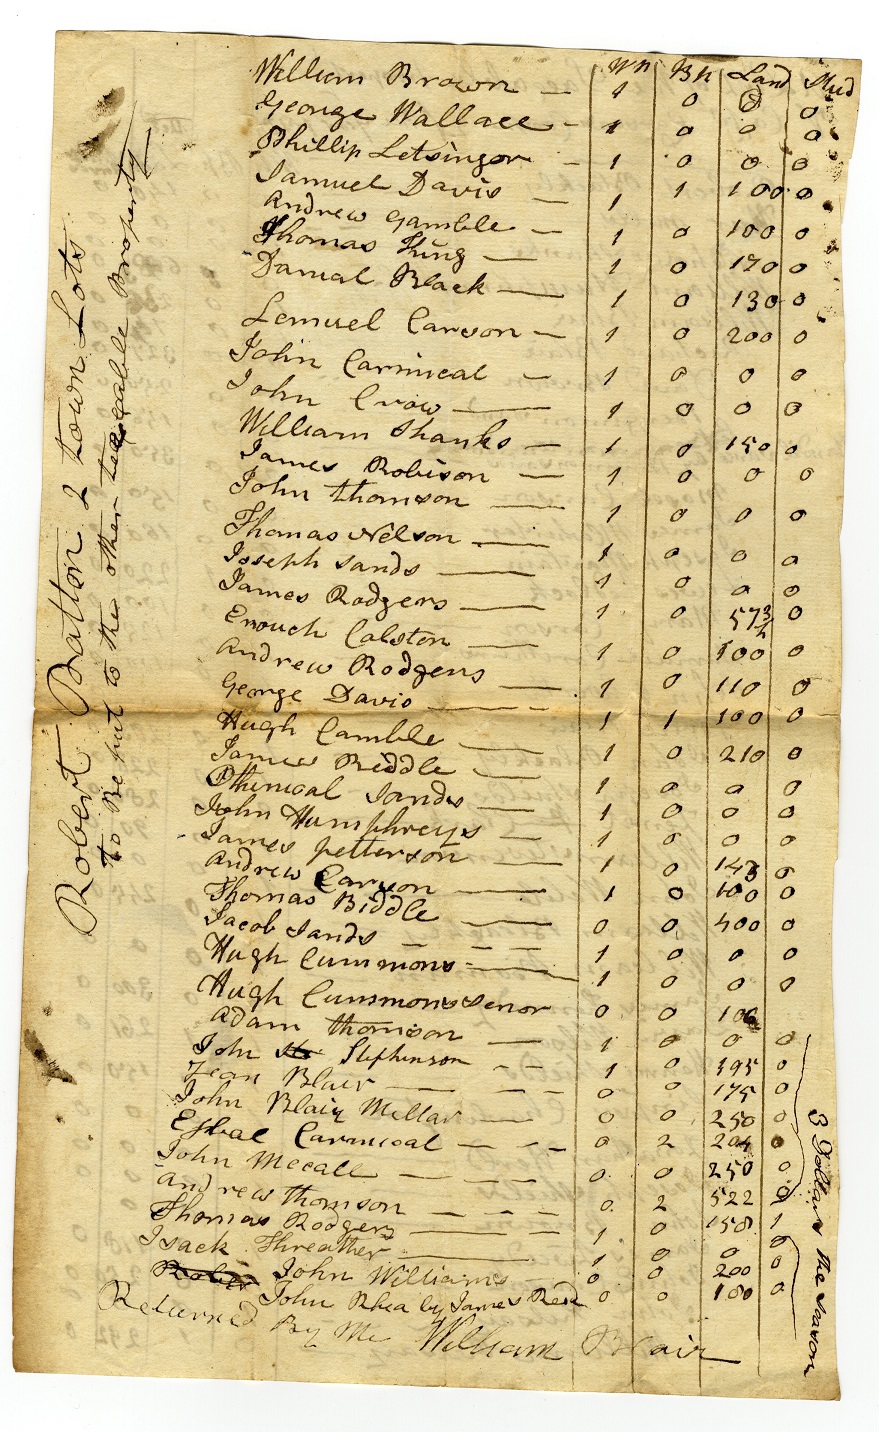 Wn Bn Land Stud
William Brown — 1 0 0 0
George Wallace - 1 0 0 0
Phillip Letsinger - 1 0 0 0
Samuel Davis — 1 1 100 0
Andrew Gamble — 1 0 100 0
Thomas King — 1 0 170 0
Danial Black — 1 0 130 0
Lemuel Carson — 1 0 200 0
John Carmical — 1 0 0 0
John Crow — 1 0 0 0
William Shanks — 1 0 150 0
James Robison — 1 0 0 0
John thomson — 1 0 0 0
Thomas Nelson — 1 0 0 0
Joseph Sands — 1 0 0 0
James Rodgers — 1 0 57 0
Enouch Colston — 1 0 100 0
Andrew Rodgers — 1 0 110 0
George Davis — 1 1 100 0
Hugh Camble — 1 0 210 0
James Biddle — 1 0 0 0
Sands — 1 0 0 0
John Humphreys — 1 0 0 0
James petterson — 1 0 143 0
Andrew Carson — 1 0 100 0
Thomas Biddle — 0 0 400 0
Jacob Sands — 1 0 0 0
Hugh Cummons — 1 0 0 0
Hugh Cummons Senor 0 0 100
Adam thomson — 1 0 0 0
John Stephinson — 1 0 395 0
Jean Blair — 0 0 175 0
John Blair Millar — 0 0 250 0
Carmical — 0 2 204 0
John Mccall — 0 0 250 0
Andrew thomson — 0 2 522 0
Thomas Rodgers — 1 0 158 1
Isack Threather — 1 0 0 0
John Williams — 0 0 200 0
John Rhea by James Reed 0 0 180 0
Returned By Me William Blair
Robert Patton 2 town Lots
to Be put to the other taxable Property
3 Dollars the season